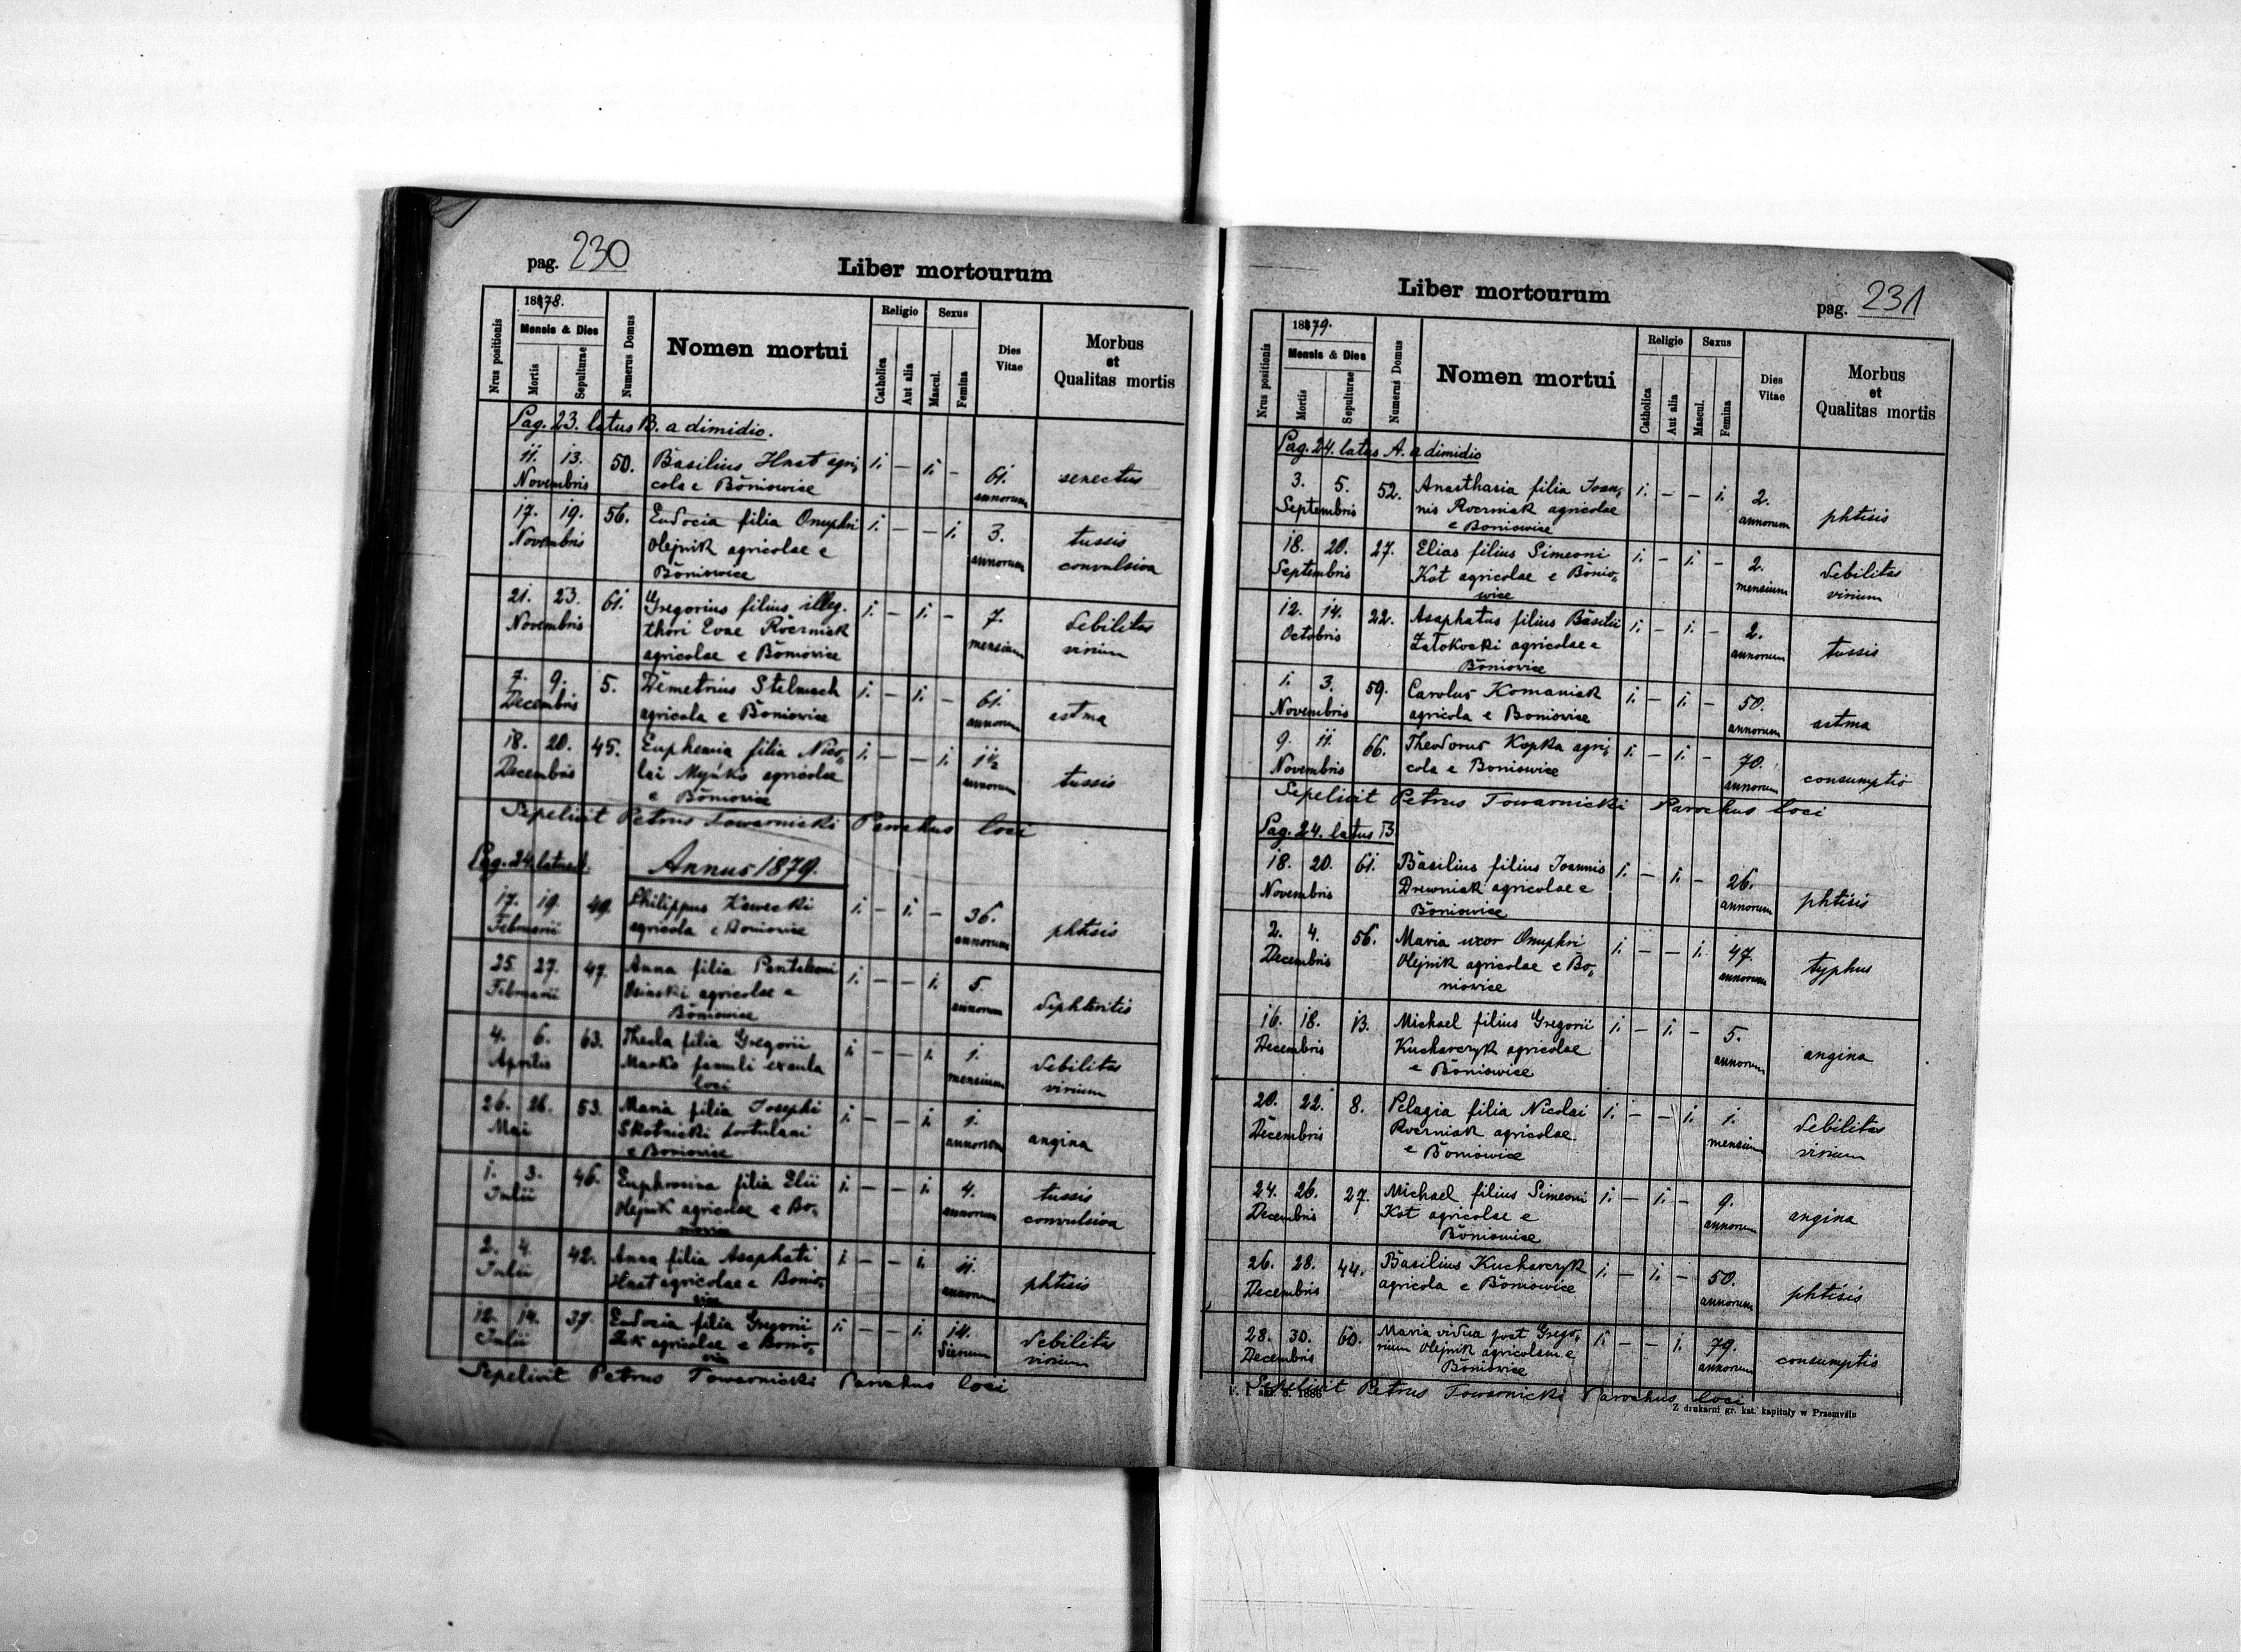 pag. 230
Liber mortourum
1878.
Mensis & Dies
Nrus positionis
Mortis
Sepulturae
Numerus Domus
Nomen mortui
Religio
Catholica
Aut alia
Sexus
Mascul.
Femina
Dies Vitae
Morbus
et
Qualitas mortis
Pag. 23. latus B. a dimidio.
11. 13. 50. Basilius Hnat agri, 1. – 1. – 61. senectus
Novembris cola e Boniowice annorum
17. 19. 56. Eudocia filia Onuphri 1. – – 1. 3. tussis
Novembris Olejnik agricolae e annorum convulsiva
Boniowice
21. 23. 61. Gregorius filius illeg. 1. – 1. – 7. debilitas
Novembris thori Evae Roczniak mensium virium
agricolae e Boniowice
7. 9. 5. Demetrius Stelmach 1. – 1. – 61. astma
Decembris agricola e Boniowice annorum
18. 20. 45. Euphemia filia Nico, 1. – – 1. 1½ tussis
Decembris lai agricolae annorum
e Boniowice
Sepelivit Petrus Towarnicki Parochus loci
Pag. 24. latus A.
Annus 1879.
17. 19. 49. Philippus Kawecki 1. – 1. – 36. phtisis
Februarii agricola e Boniowice annorum
25. 27. 47. Anna filia Pantaleoni 1. – – 1. 5. diphteritis
Februarii agricolae e annorum
Boniowice
4. 6. 63. Thecla filia Gregorii 1. – – 1. 1. debilitas
Aprilis Marko famuli mensium virium
loci
26. 26. 53. Maria filia Josephi 1. – – 1. 1. angina
Mai Skotnicki annorum
e Boniowice
1. 3. 46. Euphrosina filia Elii 1. – – 1. 4. tussis
Julii Olejnik agricolae e Bo, annorum convulsiva
niowice
2. 4. 42. Anna filia Asaphati 1. – – 1. 11. phtisis
Julii Hnat agricolae e Bonio, annorum
wice
12. 14. 37. Eudocia filia Gregorii 1. – – 1. 14. debilitas
Julii agricolae e Bonio, dierum virium
Sepelivit Petrus Towarnicki Parochus loci
Liber mortourum
pag. 231
1879.
Mensis & Dies
Nrus positionis
Mortis
Sepulturae
Numerus Domus
Nomen mortui
Religio
Catholica
Aut alia
Sexus
Mascul.
Femina
Dies Vitae
Morbus
et
Qualitas mortis
Pag. 24. latus A. a dimidio
3. 5. 52. Anasthasia filia Joan, 1. – – 1. 2. phtisis
Septembris nis Roczniak agricolae annorum
e Boniowice
18. 20. 27. Elias filius Simeoni 1. – 1. – 2. debilitas
Septembris Kot agricolae e Bonio, mensium virium
wice
12. 14. 22. Asaphatus filius Basilii 1. – 1. – 2. tussis
Octobris Zatokocki agricolae e annorum
Boniowice
1. 3. 59. Carolus Komaniak 1. – 1. – 50. astma
Novembris agricola e Boniowice annorum
9. 11. 66. Theodorus Kopka agri, 1. – 1. – 70. consumptio
Novembris cola e Boniowice annorum
Sepelivit Petrus Towarnicki Parochus loci
Pag. 24. latus B
18. 20. 61. Basilius filius Joannis 1. – 1. – 26. phtisis
Novembris Drewniak agricolae e annorum
Boniowice
2. 4. 56. Maria uxor Onuphri 1. – – 1. 47. typhus
Decembris Olejnik agricolae e Bo, annorum
niowice
16. 18. 13. Michael filius Gregorii 1. – 1. – 5. angina
Decembris Kucharczyk agricolae annorum
e Boniowice
20. 22. 8. Pelagia filia Nicolai 1. – – 1. 1. debilitas
Decembris Roczniak agricolae mensium virium
e Boniowice
24. 26. 27. Michael filius Simeoni 1. – 1. – 9. angina
Decembris Kot agricolae e annorum
Boniowice
26. 28. 44. Basilius Kucharczyk 1. – 1. – 50. phtisis
Decembris agricola e Boniowice annorum
28. 30. 60. Maria vidua post Grego, 1. – – 1. 79. consumptio
Decembris rium Olejnik agricolam e annorum
Boniowice
Sepelivit Petrus Towarnicki Parochus loci
Z drukarni gr. kat. kapituły w Przemyślu